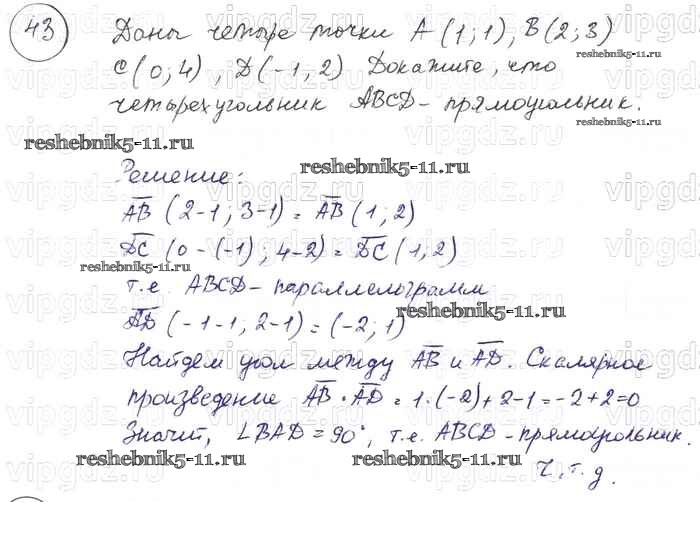 43 Даны четыре точки A (1; 1), B(2; 3)
C(0; 4), D(-1, 2) Докажите, что
четырехугольник ABCD - прямоугольник.
reshebnik5-11.ru
reshebnik5-11.ru
reshebnik5-11.ru
reshebnik5-11.ru
Решение:
AB (2-1; 3-1) = AB (1; 2)
DC (0 - (-1); 4-2) = DC (1, 2)
reshebnik5-11.ru
т.е. ABCD - параллелограмм
reshebnik5-11.ru
AD (-1-1, 2-1) = (-2; 1)
Найдем угол между AB и AD. Скалярное
произведение AB · AD = 1·(-2) + 2·1 = -2+2=0
Значит, ∠BAD = 90°, т.е. ABCD - прямоугольник.
reshebnik5-11.ru
reshebnik5-11.ru
ч.т.д.
vipgdz.ru